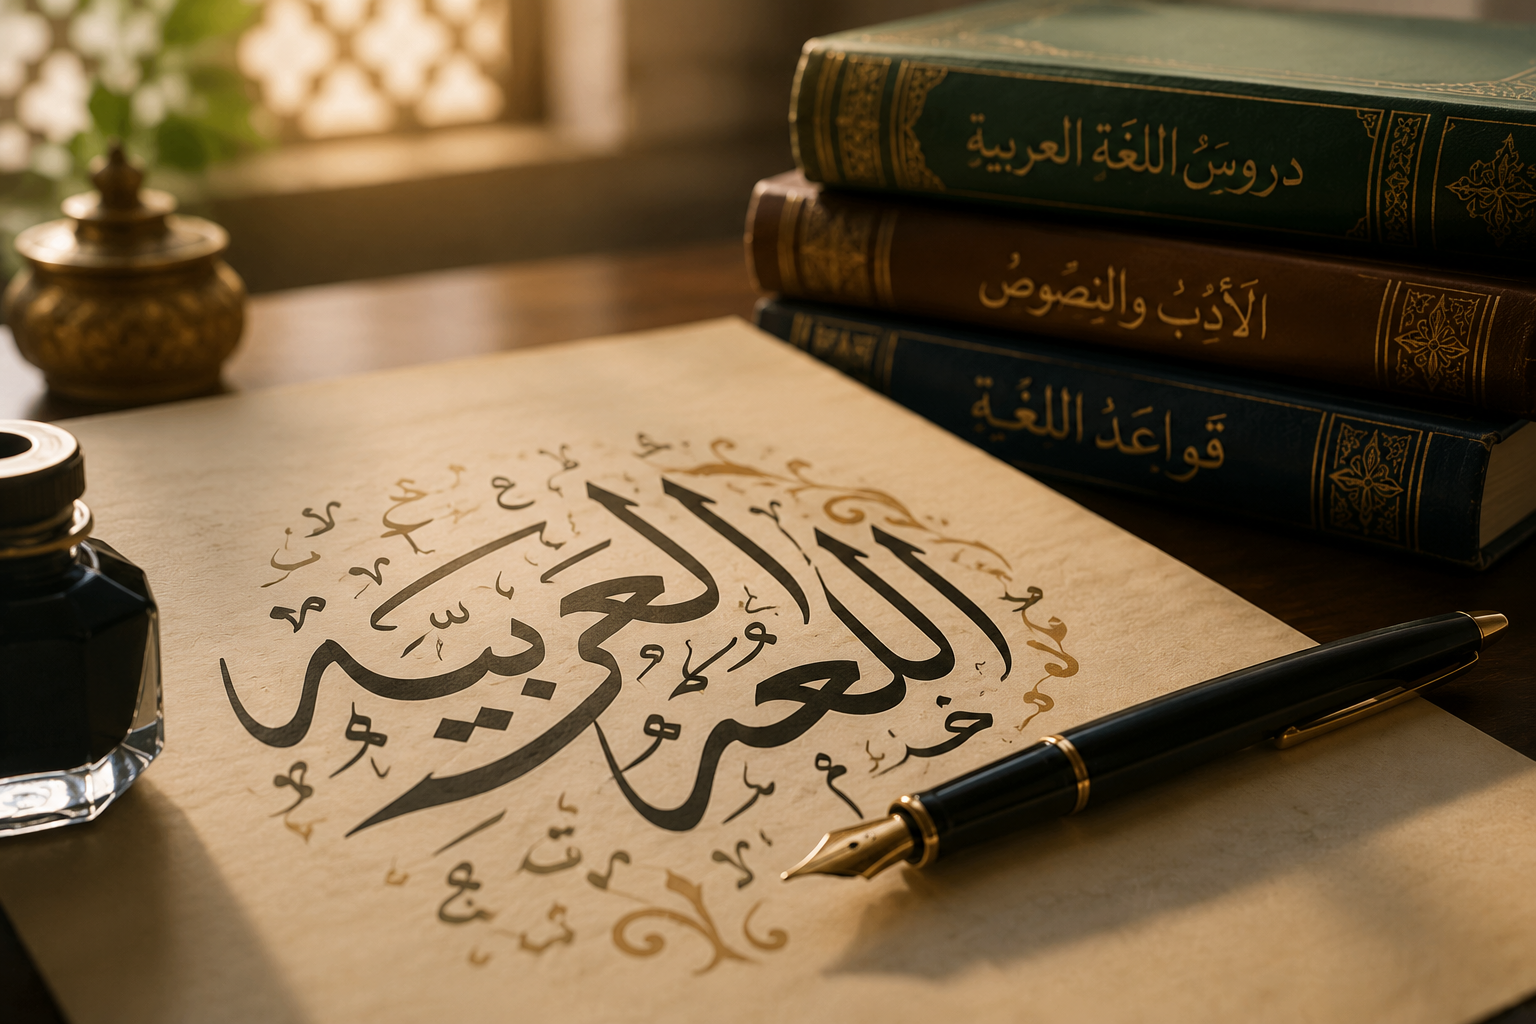 دروسُ اللغَةِ العربيةِ
الأَدُبُ والنِصُوصُ
قَواعَدُ اللغَةِ
اللغة العَربيَّة